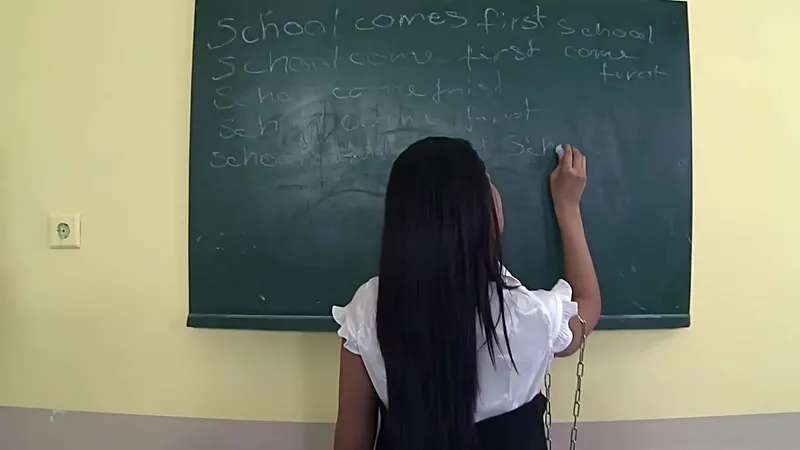 School comes first School
School come first come
first
School come first
School come first
School Sch